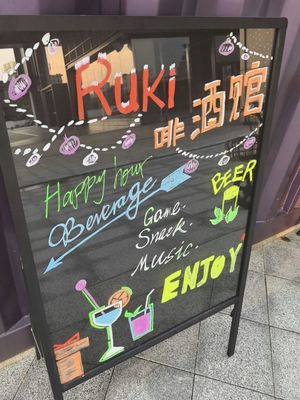 Ruki
啡酒馆
Happy hour
Beverage
BEER
Game.
Snack.
Music.
ENJOY